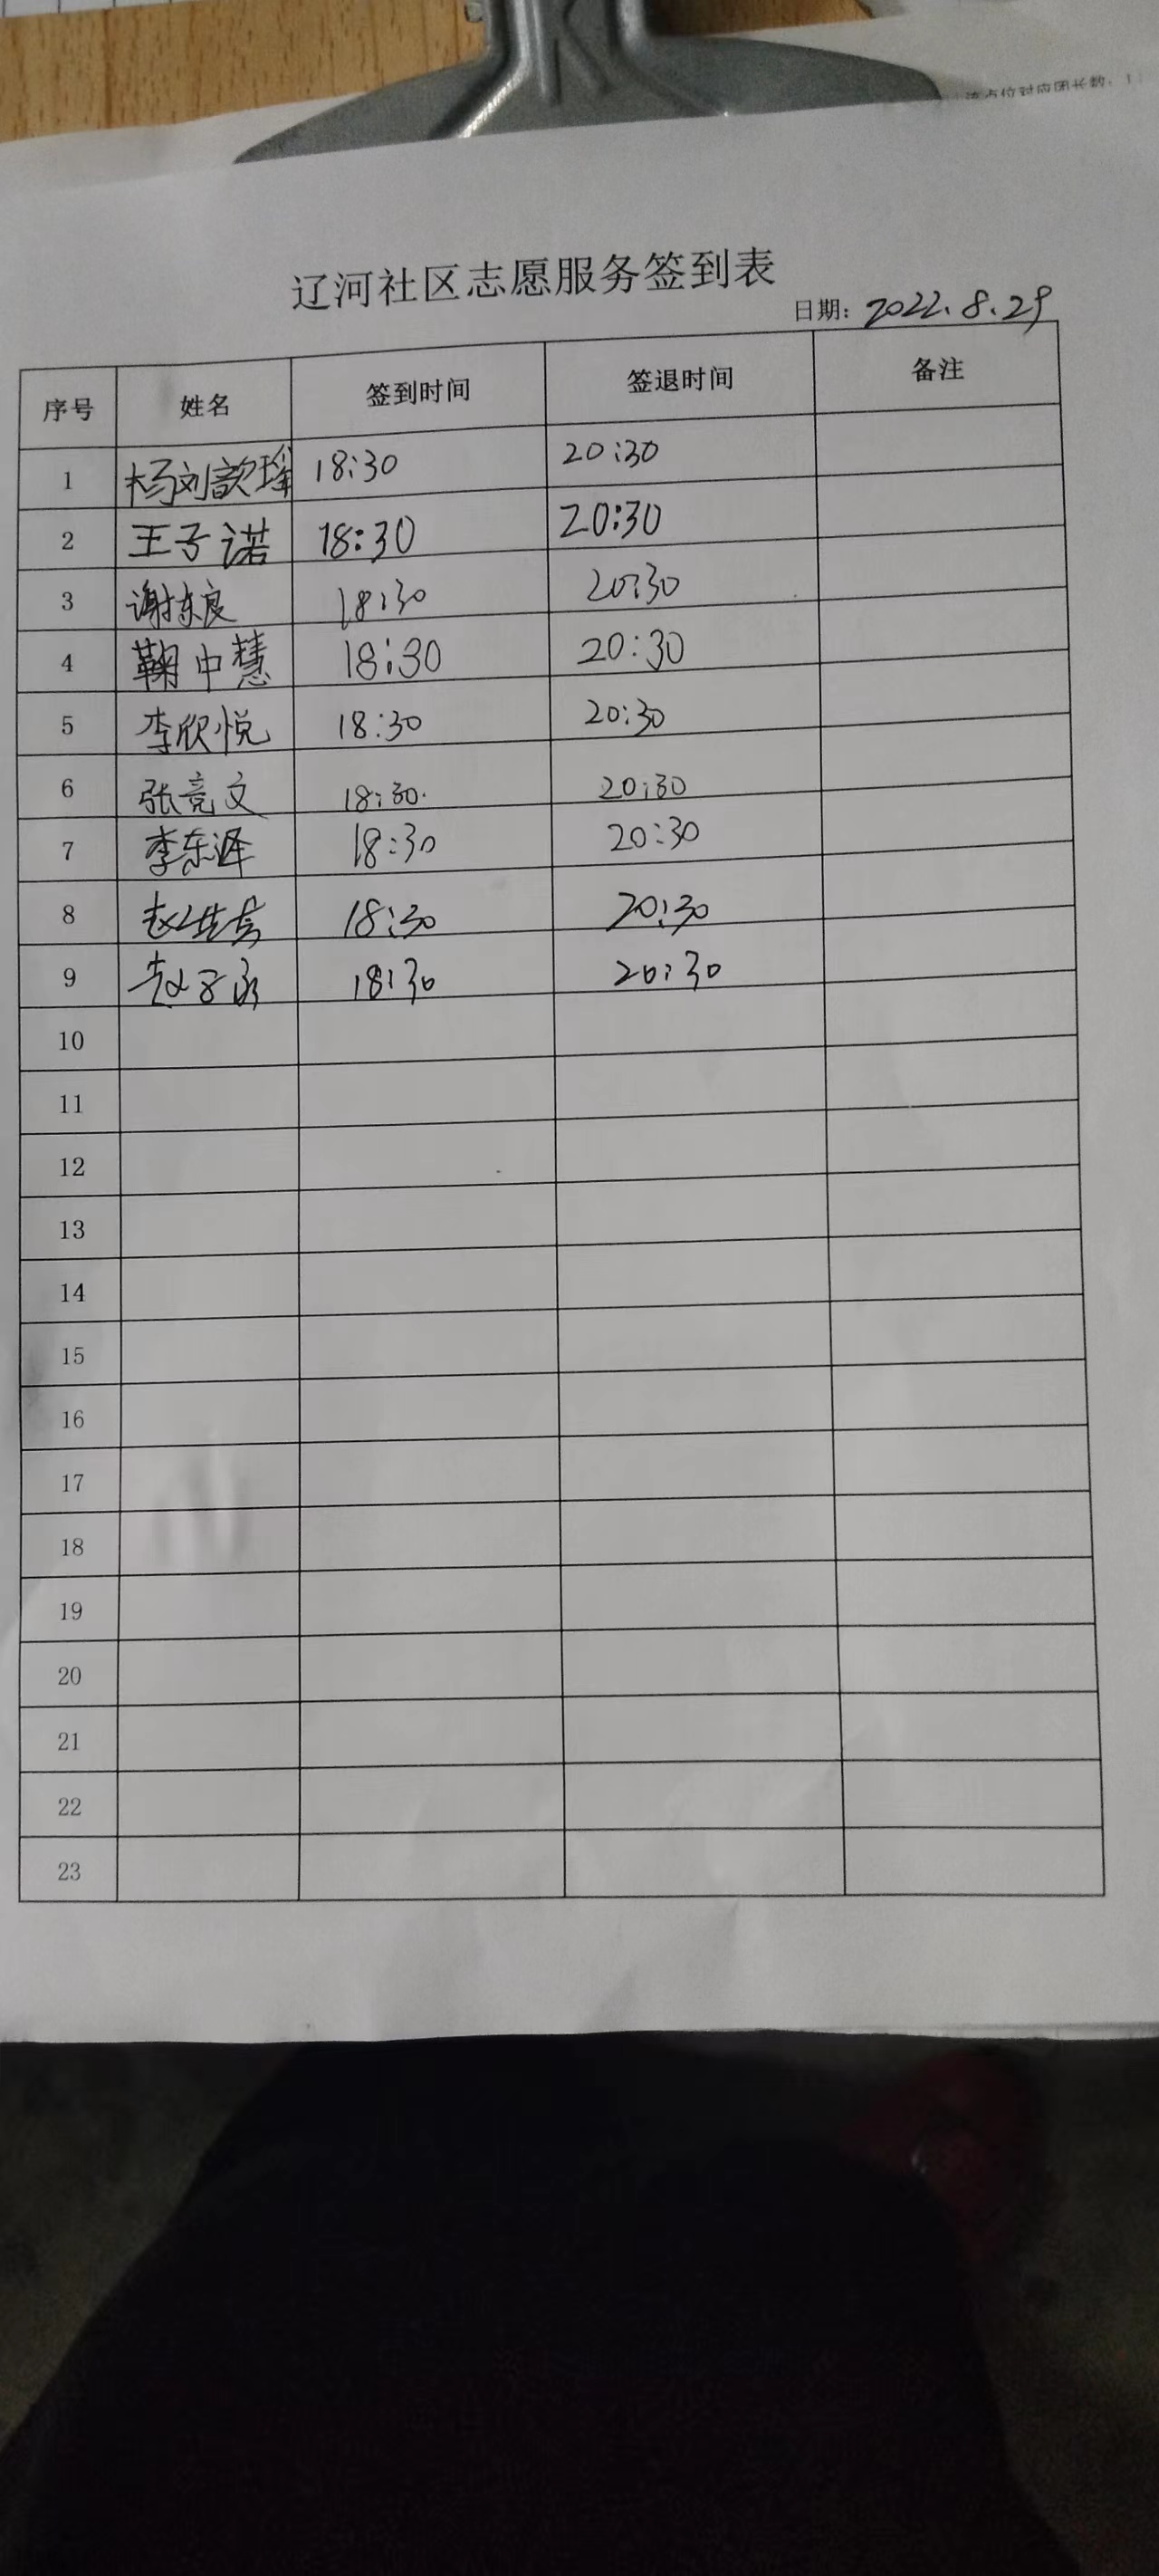 流点位对应团长数：1
辽河社区志愿服务签到表
日期：2022.8.29
序号 姓名 签到时间 签退时间 备注
1 杨刘歆瑶 18:30 20:30
2 王子诺 18:30 20:30
3 谢东良 18:30 20:30
4 鞠中慧 18:30 20:30
5 李欣悦 18:30 20:30
6 张竞文 18:30 20:30
7 李东泽 18:30 20:30
8 赵 18:30 20:30
9 赵子 18:30 20:30
10
11
12
13
14
15
16
17
18
19
20
21
22
23